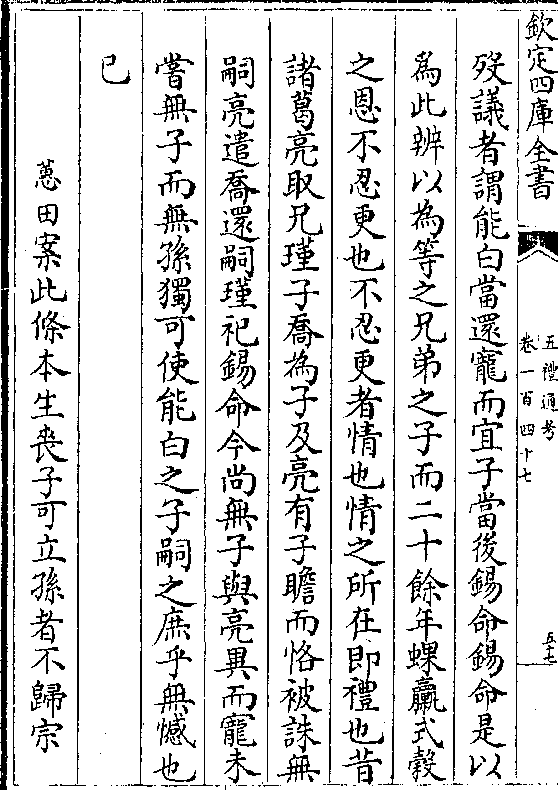 欽定四庫全書
五禮通考
卷一百四十七
五七
歿議者謂能白當還寵而宜子當後錫命錫命是以
為此辨以為等之兄弟之子而二十餘年蜾蠃式穀
之恩不忍更也不忍更者情也情之所在即禮也昔
諸葛亮取兄瑾子喬為子及亮有子瞻而恪被誅無
嗣亮遣喬還嗣瑾祀錫命今尚無子與亮異而寵未
嘗無子而無孫獨可使能白之子嗣之庶乎無憾也
已
蕙田案此條本生喪子可立孫者不歸宗